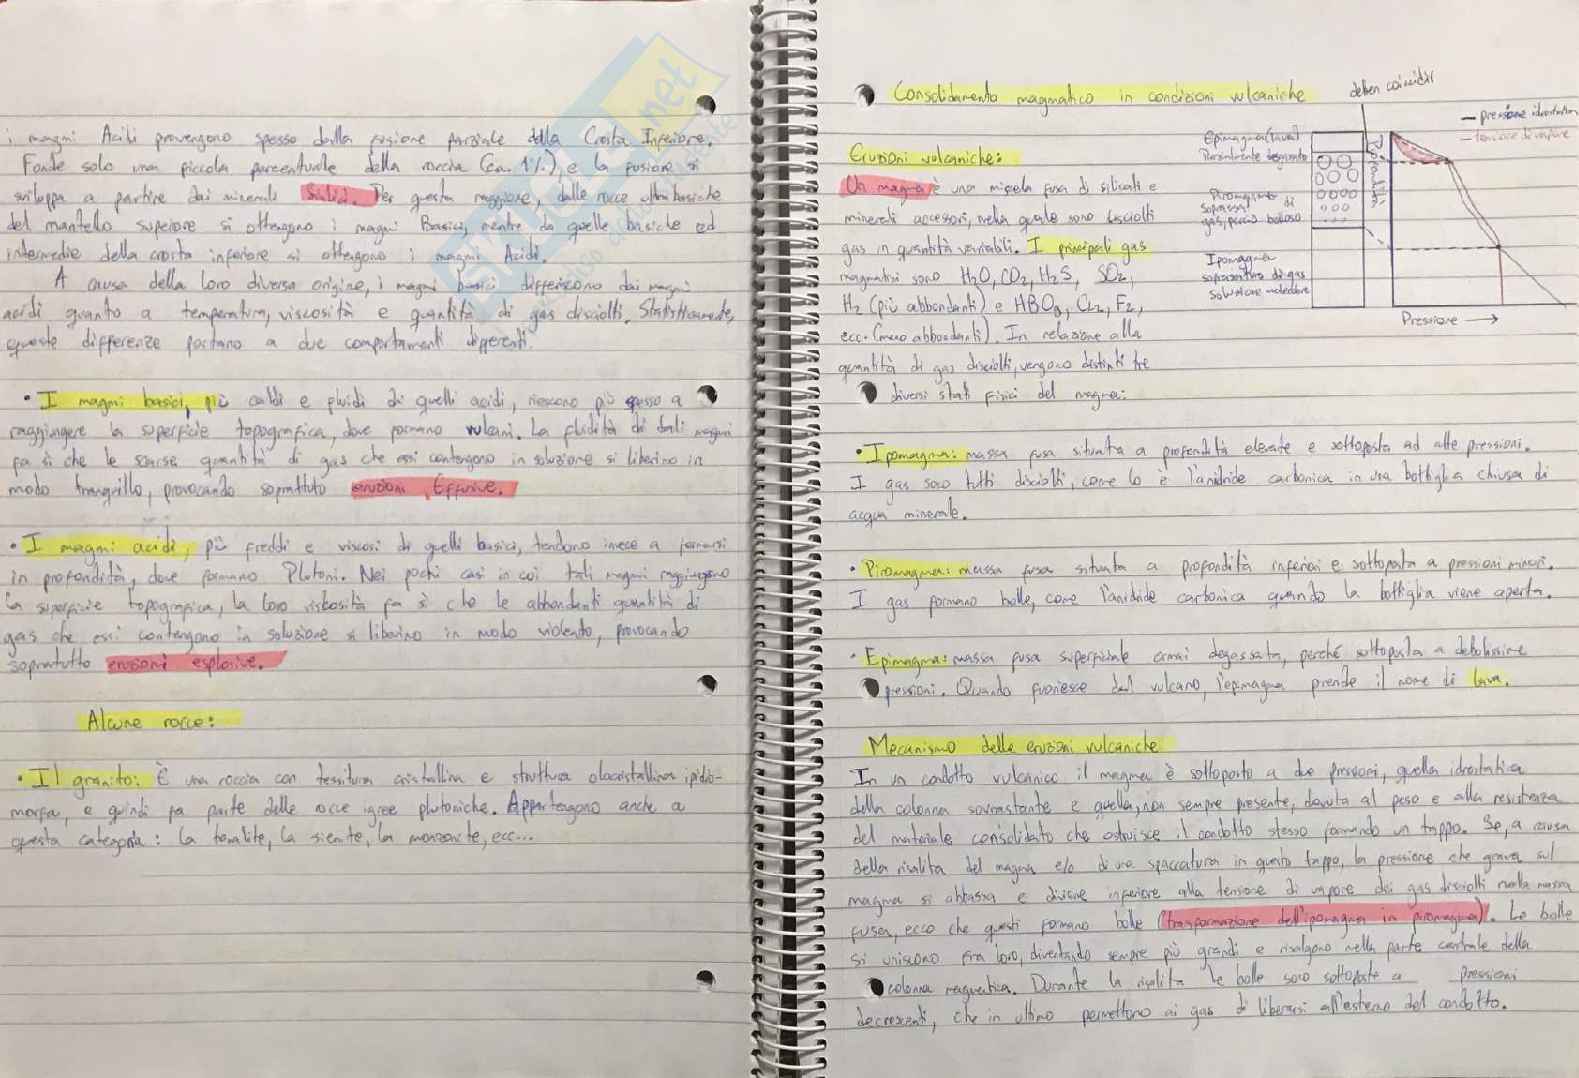 i magmi Acidi provengono spesso dalla fusione parziale della Crosta Inferiore.
Fonde solo una piccola percentuale della roccia (ca. 1%), e la fusione si
sviluppa a partire dai minerali Sialici. Per questa ragione, dalle rocce ultrabasiche
del mantello superiore si ottengono i magmi Basici, mentre da quelle basiche ed
intermedie della crosta inferiore si ottengono i magmi Acidi.
A causa della loro diversa origine, i magmi basici differiscono dai magmi
acidi quanto a temperatura, viscosità e quantità di gas disciolti. Statisticamente,
queste differenze portano a due comportamenti differenti.
• I magmi basici, più caldi e fluidi di quelli acidi, riescono più spesso a
raggiungere la superficie topografica, dove formano vulcani. La fluidità di tali magmi
fa sì che le scarse quantità di gas che essi contengono in soluzione si liberino in
modo tranquillo, provocando soprattutto eruzioni Effusive.
• I magmi acidi, più freddi e viscosi di quelli basici, tendono invece a fermarsi
in profondità, dove formano Plutoni. Nei pochi casi in cui tali magmi raggiungono
la superficie topografica, la loro viscosità fa sì che le abbondanti quantità di
gas che essi contengono in soluzione si liberino in modo violento, provocando
sopratutto eruzioni esplosive.
Alcune rocce:
• Il granito: È una roccia con tessitura cristallina e struttura olocristallina ipidio-
morfa, e quindi fa parte delle rocce ignee plutoniche. Appartengono anche a
questa categoria: la tonalite, la sienite, la monzonite, ecc...
Consolidamento magmatico in condizioni vulcaniche
Eruzioni vulcaniche:
Un magma è una miscela fusa di silicati e
minerali accessori, nella quale sono disciolti
gas in quantità variabili. I principali gas
magmatici sono H2O, CO2, H2S, SO2,
H2 (più abbondanti) e HBO3, Cl2, F2,
ecc. (meno abbondanti). In relazione alla
quantità di gas disciolti, vengono distinti tre
diversi stati fisici del magma:
devon coincidere
Epimagma (lava)
Parzialmente degassato
Piromagma
soprassat. di
gas, perciò bolloso
Ipomagma
sottosaturo di gas
soluzione molecolare
Profondità
— pressione idrostatica
— tensione di vapore
Pressione →
• Ipomagma: massa fusa situata a profondità elevate e sottoposta ad alte pressioni.
I gas sono tutti disciolti, come lo è l'anidride carbonica in una bottiglia chiusa di
acqua minerale.
• Piromagma: massa fusa situata a profondità inferiori e sottoposta a pressioni minori.
I gas formano bolle, come l'anidride carbonica quando la bottiglia viene aperta.
• Epimagma: massa fusa superficiale ormai degassata, perché sottoposta a debolissime
pressioni. Quando fuoriesce dal vulcano, l'epimagma prende il nome di lava.
Mecanismo delle eruzioni vulcaniche
In un condotto vulcanico il magma è sottoposto a due pressioni, quella idrostatica
della colonna sovrastante e quella, non sempre presente, dovuta al peso e alla resistenza
del materiale consolidato che ostruisce il condotto stesso formando un tappo. Se, a causa
della risalita del magma e/o di una spaccatura in questo tappo, la pressione che grava sul
magma si abbassa e diviene inferiore alla tensione di vapore dei gas disciolti nella massa
fusa, ecco che questi formano bolle (trasformazione dell'ipomagma in piromagma). Le bolle
si uniscono fra loro, diventando sempre più grandi e risalgono nella parte centrale della
colonna magmatica. Durante la risalita le bolle sono sottoposte a pressioni
decrescenti, che in ultimo permettono ai gas di liberarsi all'esterno del condotto.